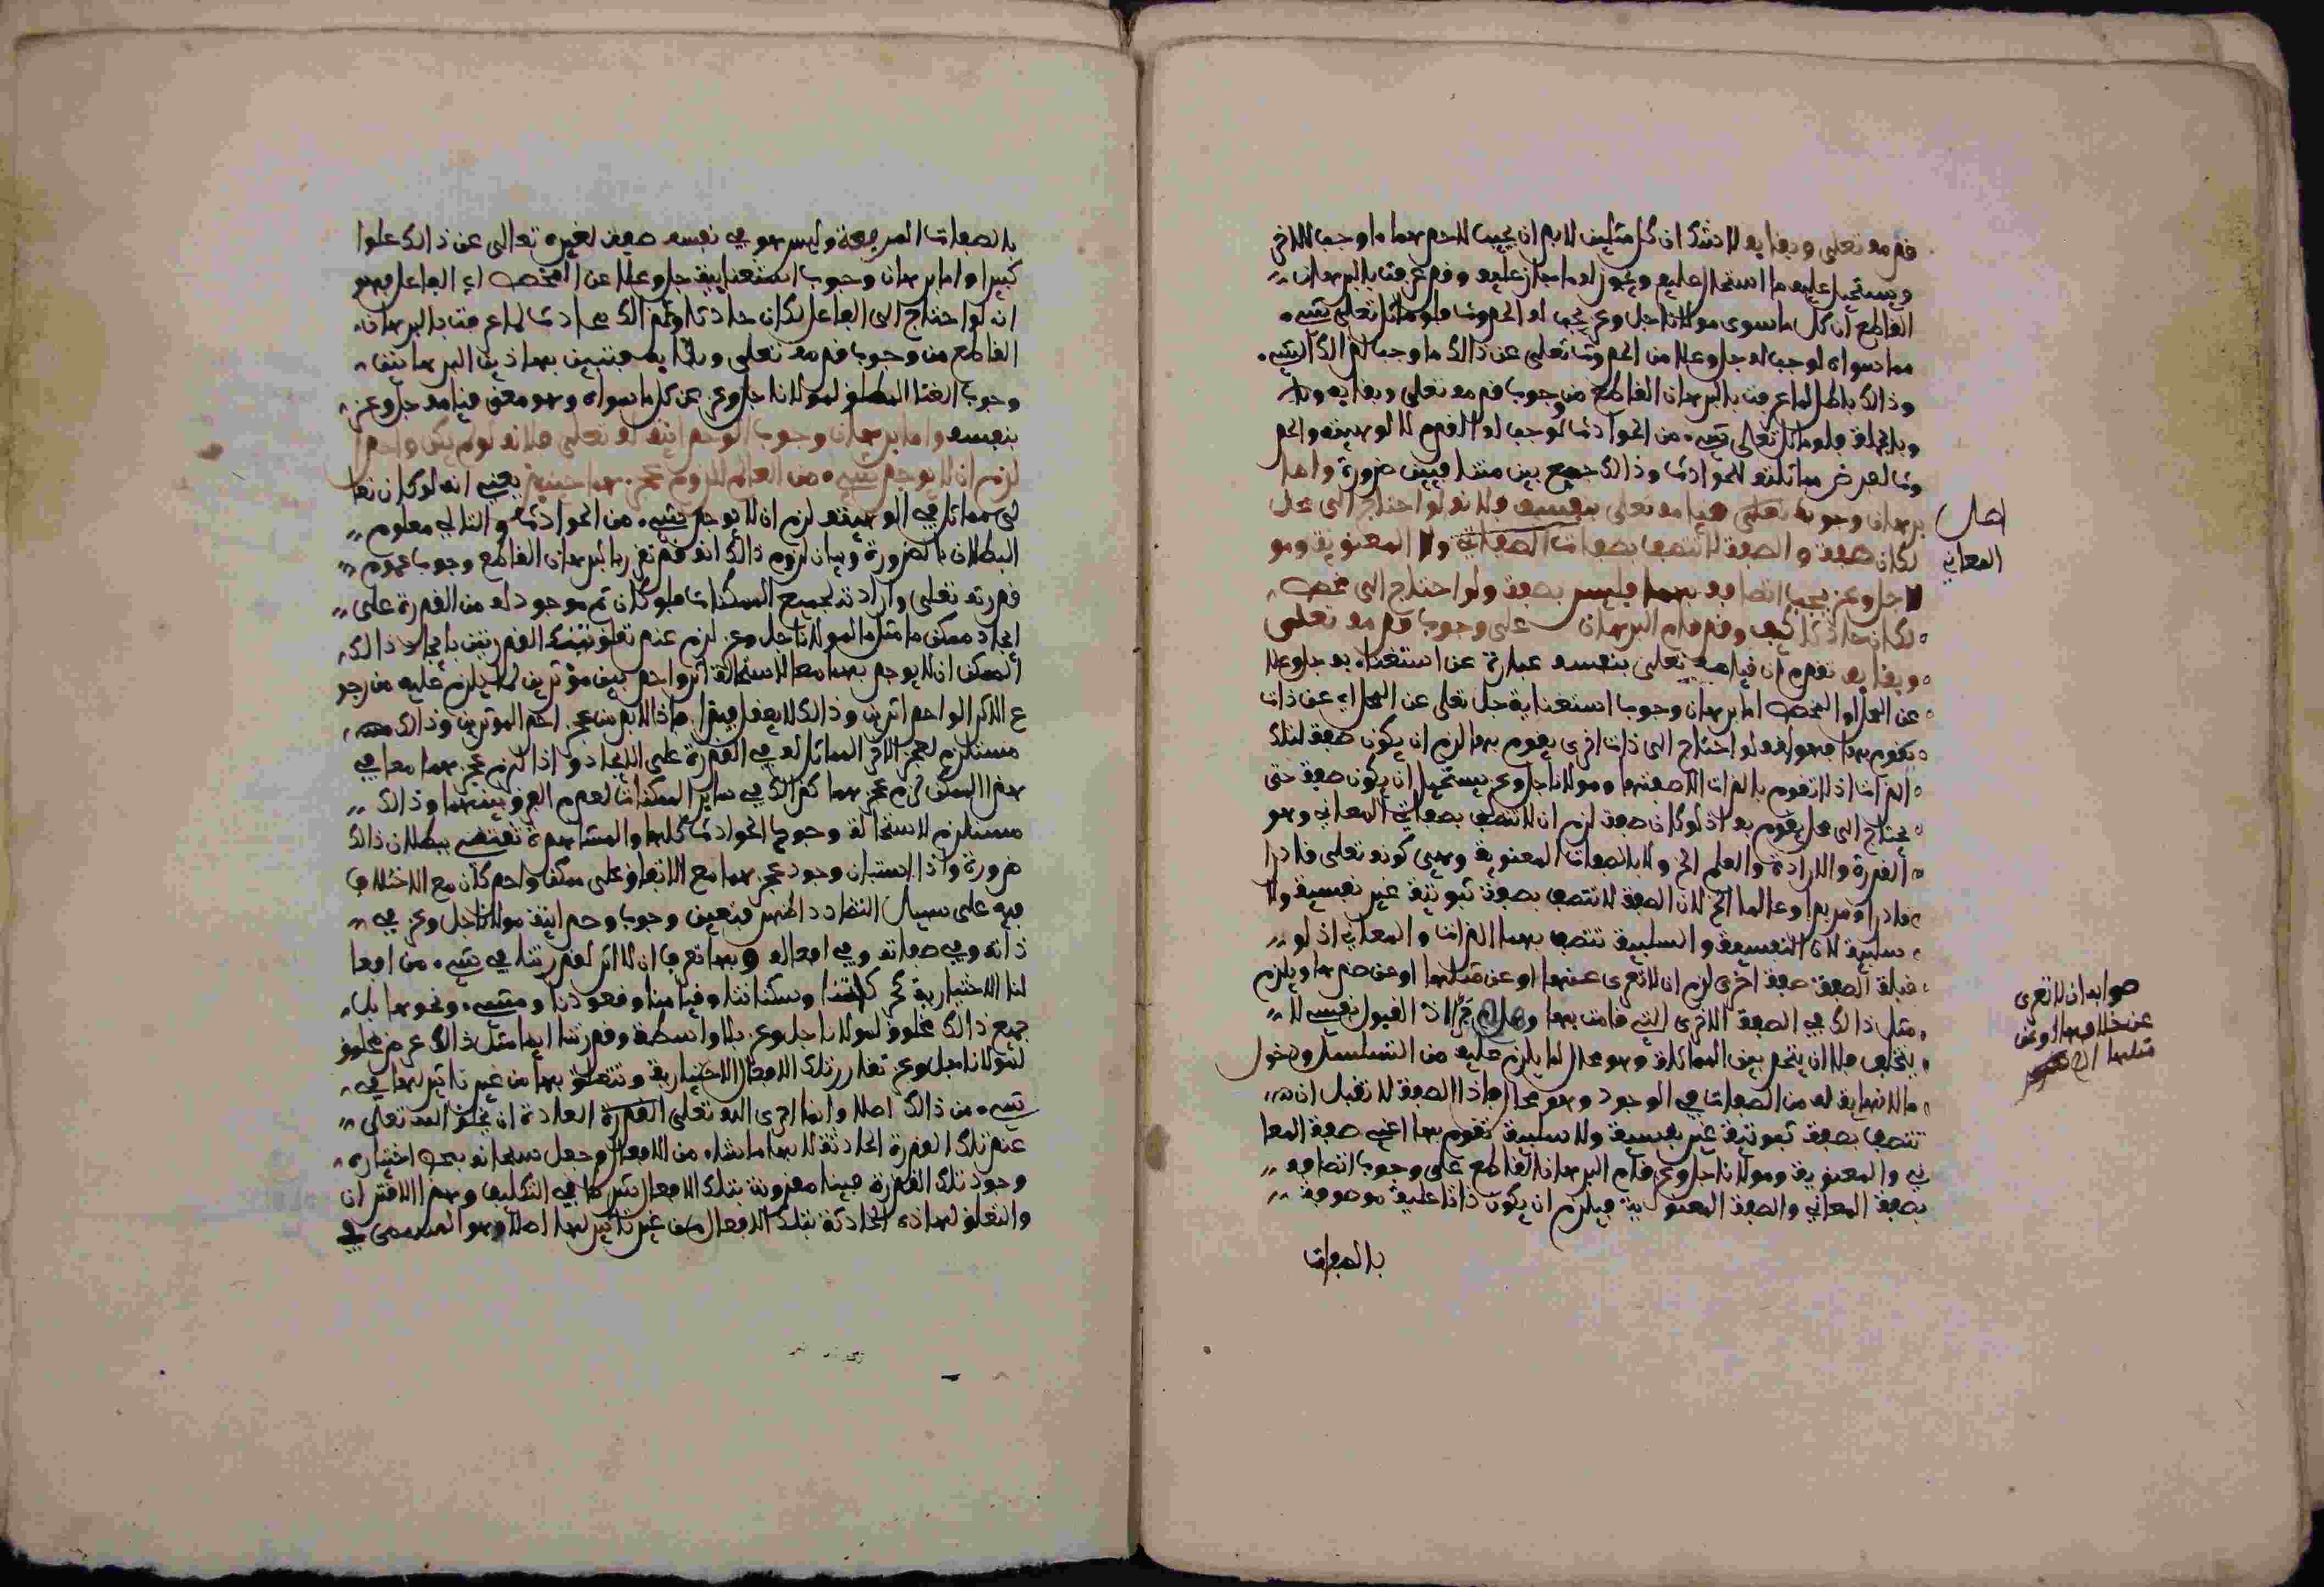 قدمه تعلى وبقايه لا شك ان كل مثلين لا بد ان يجب لاحدهما ما وجب للاخر
ويستحيل عليه ما استحال عليه ويجوز له ما جاز عليه وقد عرفت بالبرهان
القاطع ان كل ما سوى مولانا جل وعز يجب له الحدوث فلو ماثل تعلى شيء
مما سواه لوجب له جل وعلا من الحدوث تعلى عن ذالك ما وجب لذالك الشيء
وذالك باطل لما عرفت بالبرهان القاطع من وجوب قدمه تعلى وبقايه
وبالجملة فلو ماثل تعالى شيء من الحوادث لوجب له القدم لالوهيته والحد
وث لفرض مماثلته للحوادث وذالك جمع بين متنافيين ضرورة واما
برهان وجوب تعلى قيامه تعلى بنفسه فلانه لو احتاج الى محل
لكان صفة والصفة لا تتصف بصفات المعاني ولا المعنوية ومو
لانا جل وعز يجب اتصافه بهما فليس بصفة ولو احتاج الى مخصص
لكان حادثا كيف وقد قام البرهان على وجوب قدمه تعلى
وبقايه تقدم ان قيامه تعلى بنفسه عبارة عن استغناءيه جل وعلا
عن المحل او المخصص اما برهان وجوب استغنايه جل تعلى عن المحل اي عن ذات
يقوم بها فهو انه لو احتاج الى ذات اخرى يقوم بها لزم ان يكون صفة لتلك
الذات اذ لا تقوم بالذات الا صفتها ومولانا جل وعز يستحيل ان يكون صفة حتى
يحتاج الى محل يقوم به اذ لو كان صفة لزم ان لا تتصف بصفات المعاني وهو
القدرة والارادة والعلم الخ ولا بالصفات المعنوية وهي كونه تعلى قادرا
قادرا ومريدا وعالما الخ لان الصفة لا تتصف بصفة ثبوتية غير نفسية ولا
سلبية لان النفسية والسلبية تتصف بهما الذات والمعاني اذ لو
قبلة الصفة صفة اخرى لزم ان لا تعرى عنها او عن مثلها او عن ضدها ويلزم
مثل ذالك في الصفة الاخرى التي قامت بها وهلم جرا اذ القبول نفسي لا
يتخلف فلا ان يتحد بين المماثلة وهو محال لما يلزم عليه من التسلسل ودخول
ما لا نهاية له من الصفات في الوجود وهو محال فاذا الصفة لا تقبل ان
تتصف بصفة ثبوتية غير نفسية ولا سلبية تقوم بها اعني صفة المعا
ني والمعنوية ومولانا جل وعز قام البرهان القاطع على وجوب اتصافه
بصفة المعاني والصفة المعنوية فيلزم ان يكون ذاتا علية موصوفة
بالصفات
اصل
المعاني
صوابه ان لا تعرى
عن خلافها او عن
مثلها الخ
بالصفات المرفعة وليس هو في نفسه صفة لغيره تعالى عن ذالك علوا
كبيرا واما برهان وجوب استغنايه جل وعلا عن المخصص اي الفاعل فهو
انه لو احتاج الى الفاعل لكان حادثا وذالك محال لما عرفت بالبرهان
القاطع من وجوب قدمه تعلى وبقايه فتبين بهاذين البرهانين
وجوب الغنا المطلق لمولانا جل وعز عن كل ما سواه وهو معنى قيامه جل وعز
بنفسه واما برهان وجوب الوحدانية له تعلى فلانه لو لم يكن واحدا
لزم ان لا يوجد شيء من العالم للزوم عجزهما حينيذ يعني انه لو كان تعا
لى مماثل في الوهيته لزم ان لا يوجد شيء من الحوادث والتالي معلوم
البطلان بالضرورة وبيان لزوم ذالك انه قد تقرر بالبرهان القاطع وجوب عموم
قدرته تعلى وارادته لجميع الممكنات فلو كان ثم موجود له من القدرة على
ايجاد ممكن ما مثل ما لمولانا جل وعز لزم عند تعلق تلك القدرتين بايجاد ذالك
الممكن ان لا يوجد بهما معا لاستحالة اثر واحد بين مؤثرين لما يلزم عليه من رجو
ع الاثر الواحد اثرين وذالك لا يعقل فاذا لا بد من عجز احد الموثرين وذالك
مستلزم لعجز الاخر المماثل له في القدرة على الايجاد واذا لزم عجزهما معا في
هذا الممكن لزم عجزهما كذالك في ساير الممكنات لعدم الفرق بينهما وذالك
مستلزم لاستحالة وجود الحوادث كلها والمشاهدة تقتضي ببطلان ذالك
ضرورة واذا استبان وجود عجزهما مع الاتفاق على ممكن واحد كان مع الاختلاف
فيه على سبيل التضادد اظهر فتعين وجوب وحدانية مولانا جل وعز في
ذاته وفي صفاته وفي افعاله وبها تعرف ان لا اثر لقدرتنا في شيء من افعا
لنا الاختيارية كحركاتنا وسكناتنا وقيامنا وقعودنا ومشيء ونحوها بل
جميع ذالك مخلوق لمولانا جل وعز بلا واسطة وقدرتنا ايضا مثل ذالك عرض مخلوق
لمولانا جل وعز تقارر تلك الافعال الاختيارية وتتعلق بها من غير تاثير لها في
شيء من ذالك اصلا وانما اجرى الله تعلى القدرة العادة ان يخلق الله تعلى
عند تلك القدرة الحادثة لا بها ما شاء من الافعال وجعل سبحانه بمحض اختياره
وجود تلك القدرة فينا مقرونة بتلك الافعال شرطا في التكليف وهذا الاقتران
والتعلق لهاذه الحادثة بتلك الافعال من غير تاثير لها اصلا وهو المسمى في